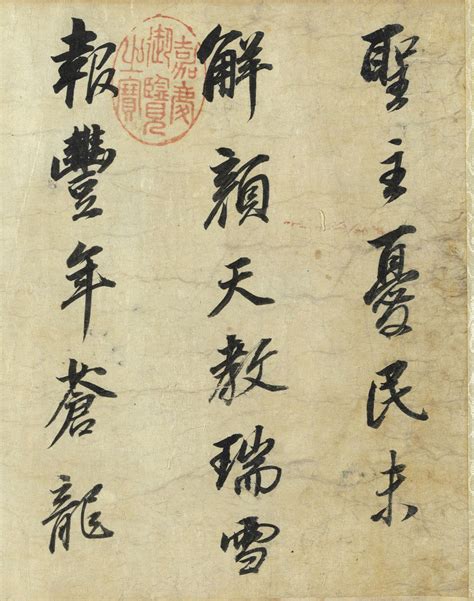 聖主憂民未
解顏天教瑞雪
報豐年蒼龍
嘉慶御覽之寶